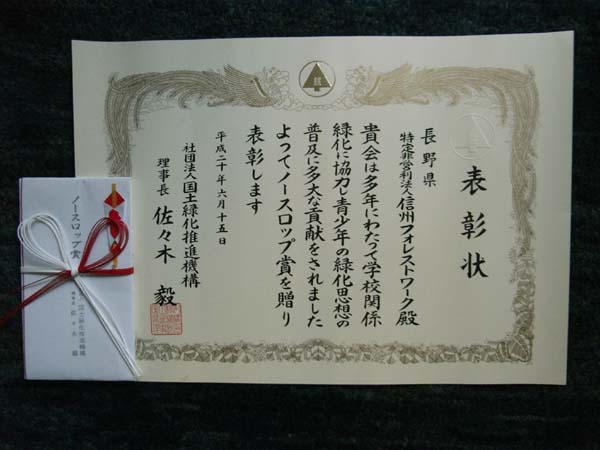 表彰状
長野県
特定非営利法人信州フォレストワーク殿
貴会は多年にわたって学校関係
緑化に協力し青少年の緑化思想の
普及に多大な貢献をされました
よってノースロップ賞を贈り
表彰します
平成二十年六月十五日
社団法人国土緑化推進機構
理事長 佐々木 毅
ノースロップ賞
国土緑化推進機構
理事長 佐々木 毅